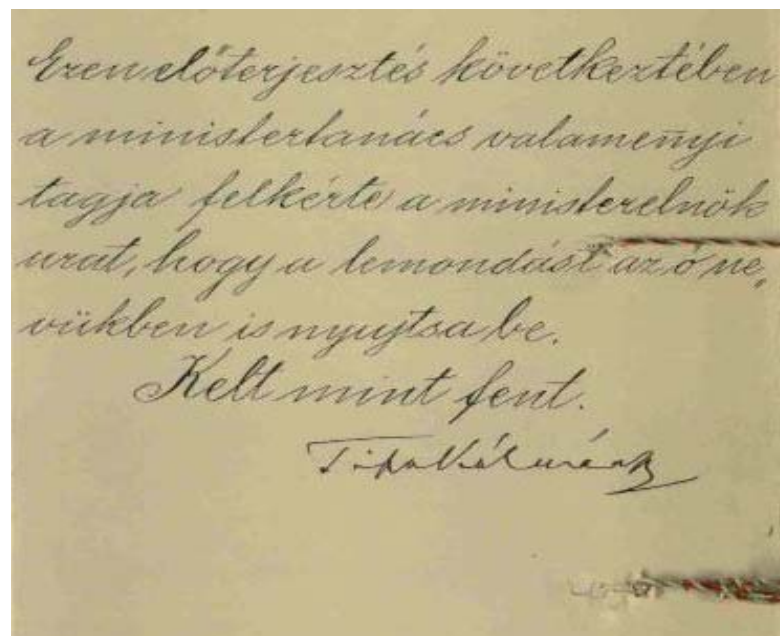 Ezen előterjesztés következtében
a ministertanács valamenyi
tagja felkérte a ministerelnök
urat, hogy a lemondást az ő ne„
vükben is nyujtsa be.
Kelt mint fent.
Tisza Kálmán